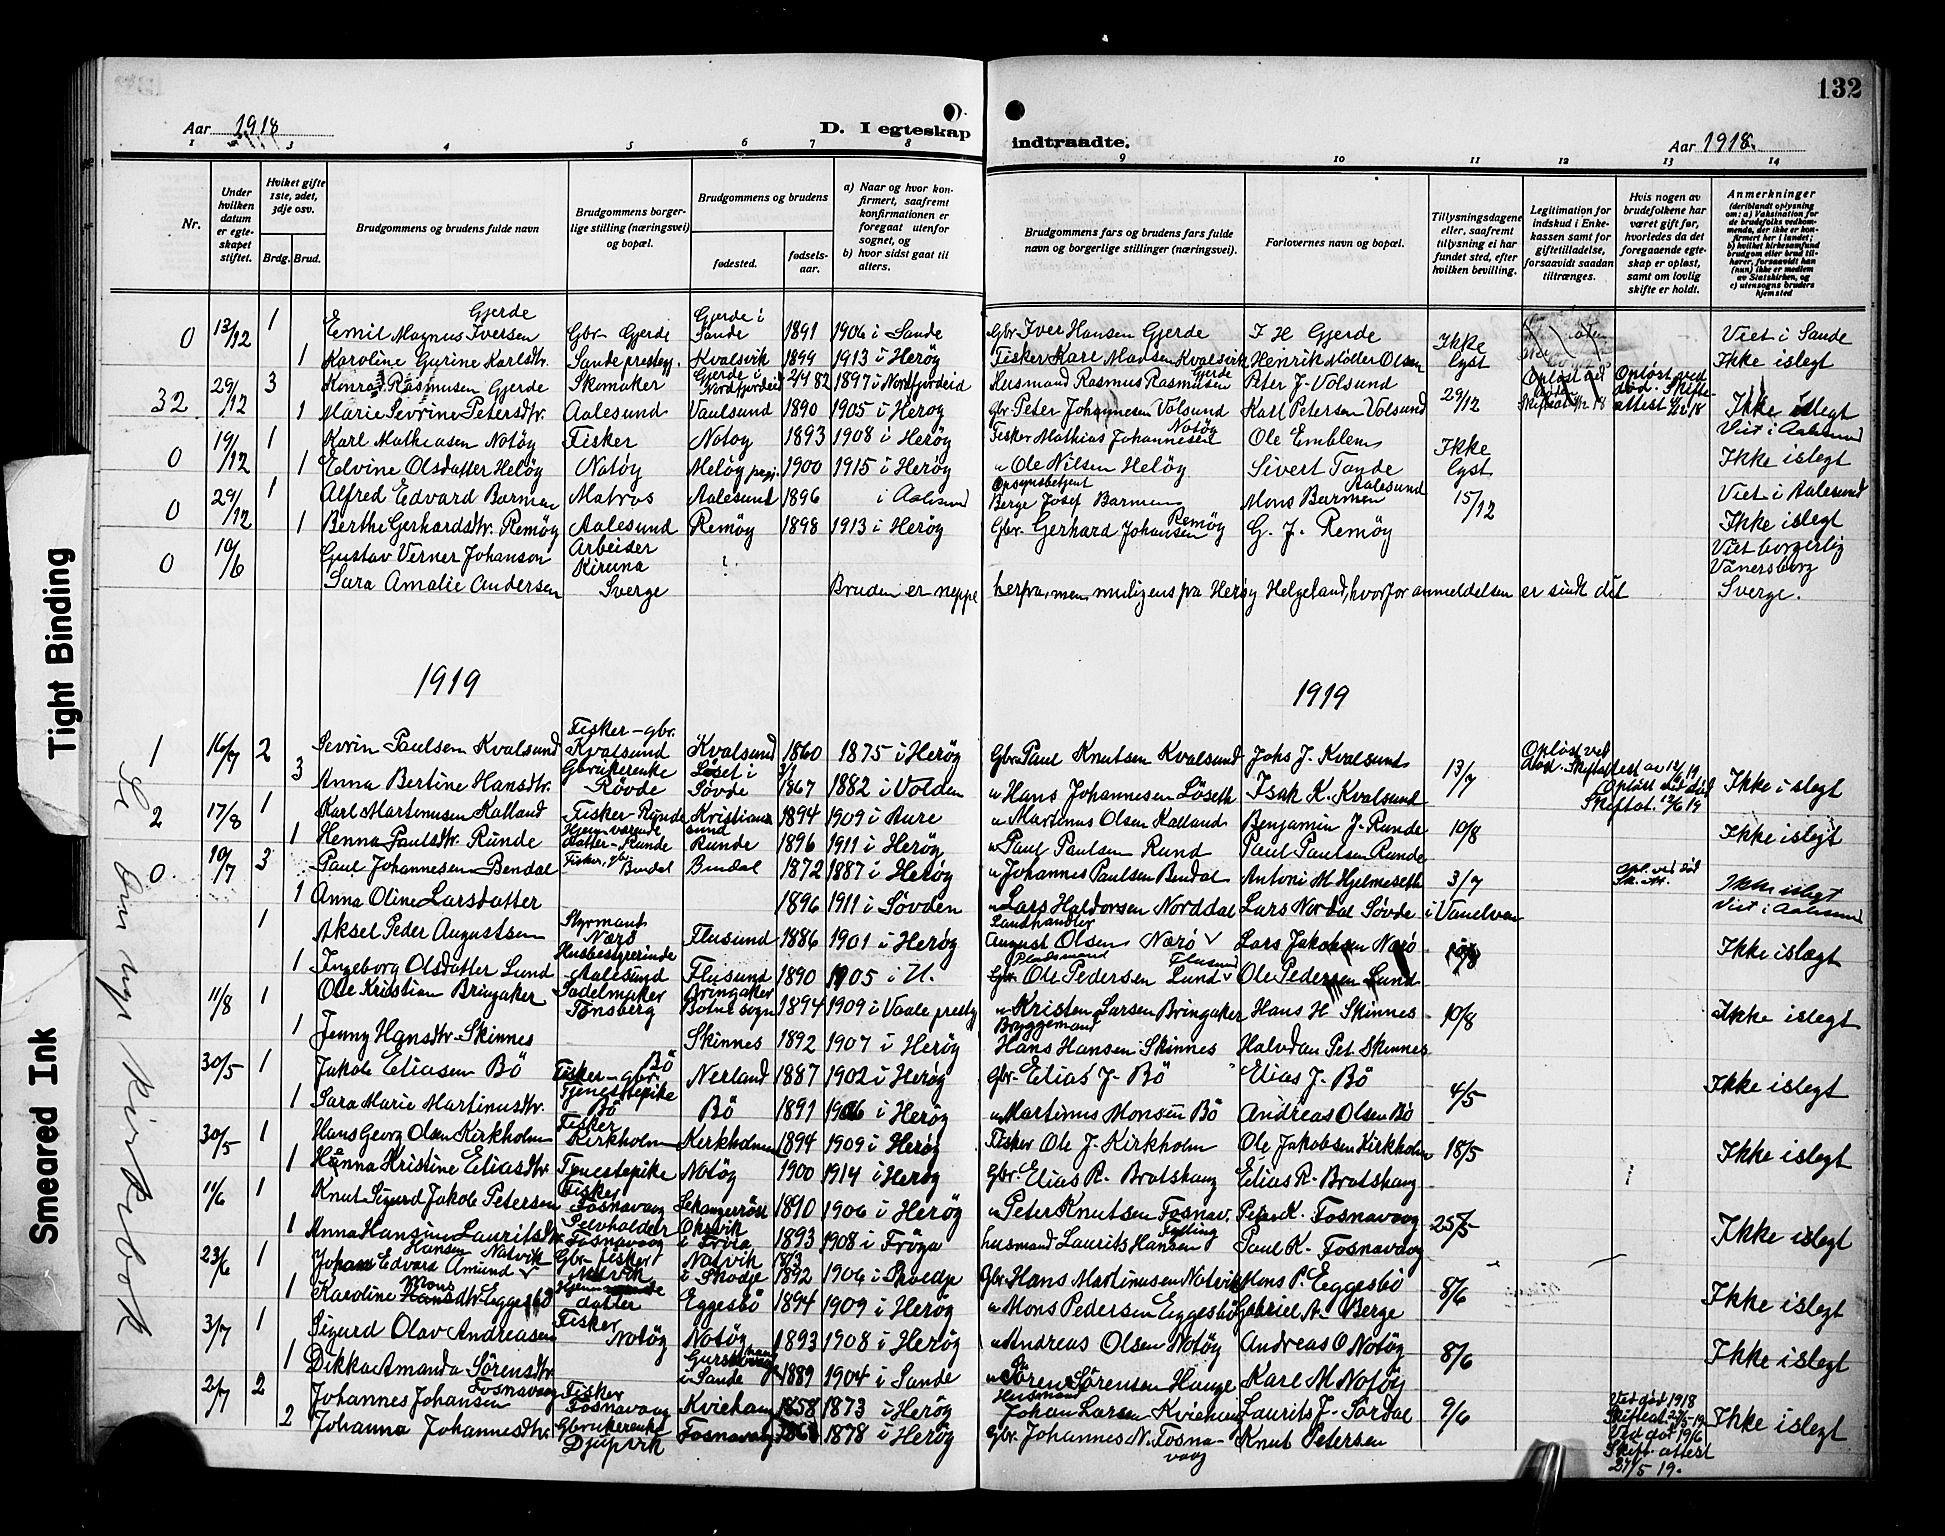 132
Aar 1918
D. I egteskap indtraadte.
Aar 1918.
1 3 4 5 6 7 8 9 10 11 12 13 14
Nr.
Under hvilken datum er egteskapet stiftet.
Hvilket gifte 1ste, 2det, 3dje osv.
Brdg. Brud.
Brudgommens og brudens fulde navn
Brudgommens borgerlige stilling (næringsvei) og bopæl.
Brudgommens og brudens
fødested.
fødselsaar.
a) Naar og hvor konfirmert, saafremt konfirmationen er foregaat utenfor sognet, og
b) hvor sidst gaat til alters.
Brudgommens fars og brudens fars fulde navn og borgerlige stillinger (næringsvei).
Forlovernes navn og bopæl.
Tillysningsdagene eller, saafremt tillysning ei har fundet sted, efter hvilken bevilling.
Legitimation for indskud i Enkekassen samt for giftetilladelse, forsaavidt saadan tiltrænges.
Hvis nogen av brudefolkene har været gift før, hvorledes da det foregaaende egteskap er opløst, samt om lovlig skifte er holdt.
Anmerkninger
(deriblandt oplysning om: a) Vaksination for de brudefolks vedkommende, der ikke er konfirmert her i landet; b) hvilket kirkesamfund brudgom eller brud tilhører, forsaavidt han (hun) ikke er medlem av Statskirken, og c) utensogns bruders hjemsted
0 13/12 1 Emil Magnus Iversen Gjerde Gbr. Gjerde Gjerde i Sande 1891 1906 i Sande Gbr. Iver Hansen Gjerde I H Gjerde Ikke lyst Viet i Sande
1 Karoline Gurine Karlsdtr. Sande prestegj. Kvalsvik 1899 1913 i Herøy Fisker Karl Hansen Kvalsvik Henrik Møller Olsen Ikke islegt
32 29/12 3 Konrad Rasmusen Gjerde Skomaker Gjerde i Nordfjordeid 24 82 1897 i Nordfjordeid Husmand Rasmus Rasmusen Gjerde Peter J. Volsund 29/12 Opløst ved død. Skifteattest
1 Marie Sevrine Petersdtr. Aalesund Vaulsund 1890 1905 i Herøy Gbr. Peter Johannesen Volsund Karl Petersen Volsund Ikke islegt
0 19/12 1 Karl Matheasen Notøy Fisker Notøy 1893 1908 i Herøy Fisker Mathias Johannesen Notøy Ole Emblem Ikke lyst Viet i Aalesund
1 Edvine Olsdatter Heløy Notøy Meløy prgj. 1900 1915 i Herøy " Ole Nilsen Heløy Sivert Tande Ikke islegt
0 29/12 1 Alfred Edvard Barmen Matros Aalesund 1896 i Aalesund Opsynsbetjent Berge Josef Barmen Mons Barmen Aalesund 15/12 Viet i Aalesund
1 Berthe Gerhardsdtr. Remøy Aalesund Remøy 1898 1913 i Herøy Gbr. Gerhard Johansen Remøy G. J. Remøy Ikke islegt
0 10/6 Gustav Verner Johanson Arbeider Kiruna ? Viet borgerlig Vänersborg
Sara Amalie Andersen Sverge Bruden er neppe herfra, men muligens fra Herøy Helgeland, hvorfor anmeldelsen er sendt dit Sverge.
1919
1919
1 16/7 2 Sevrin Paulsen Kvalsund Fisker-gbr. Kvalsund Kvalsund 1860 1875 i Herøy Gbr. Paul Knutsen Kvalsund Johs J. Kvalsund 13/7 Opløst ved død. Skifteattest av 12/6 19
3 Anna Bertine Hansdtr. Gbrukerenke Røvde Løset i Søvde 1867 1882 i Volden " Hans Johannesen Løseth Isak K. Kvalsund Opløst ved død Skifteat. 12/6 19 Ikke islegt
2 17/8 1 Karl Martinusen Kalland Fisker-Runde Kristiansund 1894 1909 i Aure " Martinus Olsen Kalland Benjamin J. Runde 10/8
1 Henna Paulsdtr. Runde Hjemværende Datter-Runde Runde 1896 1911 i Herøy " Paul Paulsen Rund Paul Paulsen Runde Ikke islegt
0. 10/7 3 Paul Johannesen Bendal Fisker, gbr. Bendal Bendal 1872 1887 i Herøy " Johannes Paulsen Bendal Antoni M Hjelmeseth 3/7 Opl. ved død Sk. At. Ikke islegt
1 Anna Oline Larsdatter 1896 1911 i Søvden " Lars Haldorsen Norddal Lars Nordal Søvde i Vanelven Viet i Aalesund
1 Aksel Peder Augustsen Styrmand Nærø Flusund 1886 1901 i Herøy Landhandler August Olsen Nærø Lars Jakobsen Nærø
1 Ingeborg Olsdatter Lund Husbestyrerinde Aalesund Flusund 1890 1905 i H. Pladsmand Ole Pedersen Lund Flusund Ole Pedersen Lund Ikke islægt
11/8 1 Ole Kristian Bringaker Sadelmaker Tønsberg Bringaker Botne sogn 1894 1909 i Vaale prestg " Kristen Larsen Bringaker Hans H Skinnes 10/8 Ikke islegt
1 Jenny Hansdtr. Skinnes Skinnes 1892 1907 i Herøy Bryggemand Hans Hansen Skinnes Halvdan Pet. Skinnes
30/5 1 Jakob Eliasen Bö Fisker-gbr. Bö Nerland 1887 1902 i Herøy Gbr. Elias J. Bö Elias J. Bö 4/5 Ikke islegt
1 Sara Marie Martinusdtr. Tjenestepike Bö Bö 1891 1906 i Herøy " Martinus Monsen Bö Andreas Olsen Bö
30/5 1 Hans Georg Olsen Kirkholm Fisker Kirkholm Kirkholmen 1894 1909 i Herøy Fisker Ole J. Kirkholm Ole Jakobsen Kirkholm 18/5 Ikke islegt
1 Hanna Kristine Eliasdtr. Tjenestepike Notøy 1900 1914 i Herøy Gbr. Elias R. Bratshaug Elias R. Bratshaug
11/6 1 Knut Sigurd Jakob Petersen Fisker Fosnavaag 1890 1906 i Herøy " Peter Knutsen Fosnav. Peter K. Fosnavaag 25/5
1 Anna Hansine Lauritsdtr. Fosnavaag i Frøia 1893 1908 i Frøya Husmand Laurits Hansen Paul K. Fosnavaag Ikke islegt
23/6 1 Johan Edvard Amund Hansen Natvik Gbr. fisker Natvik Natvik i Skodje 18/3 1892 1906 i Skodje Gbr. Hans Martinusen Natvik Mons P. Eggesbö 8/6
1 Karoline Monsdtr. Eggesbö Hjemmeværende datter Eggesbö 1894 1909 i Herøy " Mons Pedersen Eggesbö Gabriel A. Berge Ikke islegt
3/7 1 Sigurd Olav Andreasen Fisker Notøy Notøy 1893 1908 i Herøy " Andreas Olsen Notøy Andreas O Notøy 8/6
1 Dikka Amanda Sørensdtr. i Sande 1889 1904 i Sande " Søren Sørensen Hauge Karl M Notøy Ikke islegt
2/7 2 Johannes Johansen Fosnavaag Fisker Fosnavaag Kviehaug 1858 1873 i Herøy Husmand Johan Larsen Kviehaug Laurits J. Sørdal 9/6 Ved død 1918 Skifteat 27/5-19
2 Johanna Johannesdtr. Gbrukerenke Djupvik Fosnavaag 1878 i Herøy Gbr. Johannes N. Fosnavaag Knut Petersen Ved død 19/6 Skift. attest 27/5 19. Ikke islegt
Se den nye kirkebok
Tight Binding
Smeared Ink